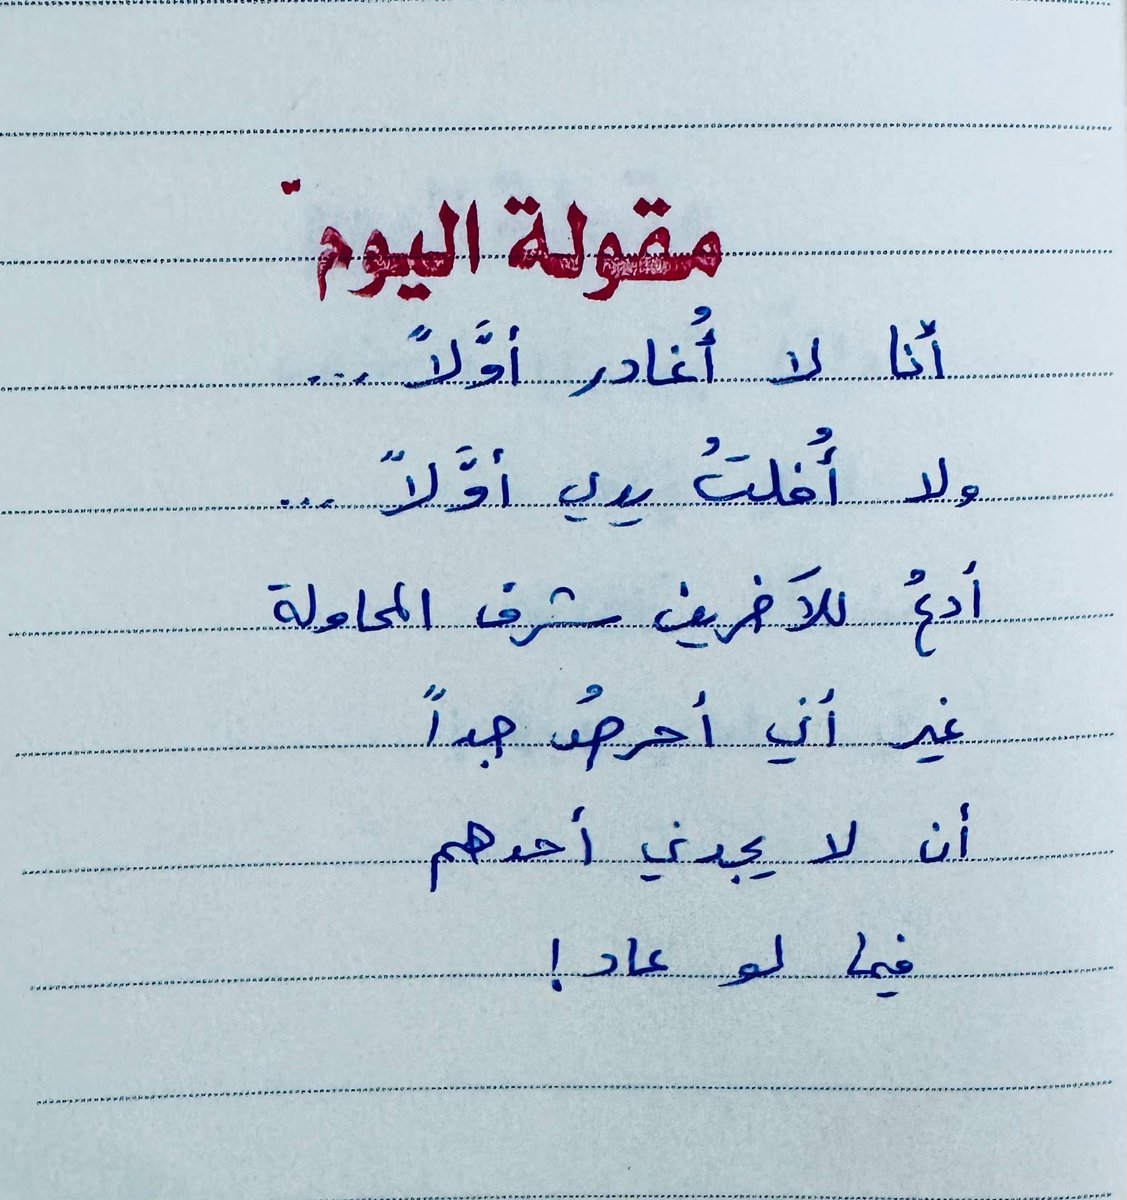 مقولة اليوم
أنا لا أُغادر أوَّلاً ...
ولا أُفلتُ يدي أوَّلاً ...
أدعُ للآخرين شرف المحاولة
غير أني أحرصُ جداً
أن لا يجدني أحدهم
فيما لو عاد !